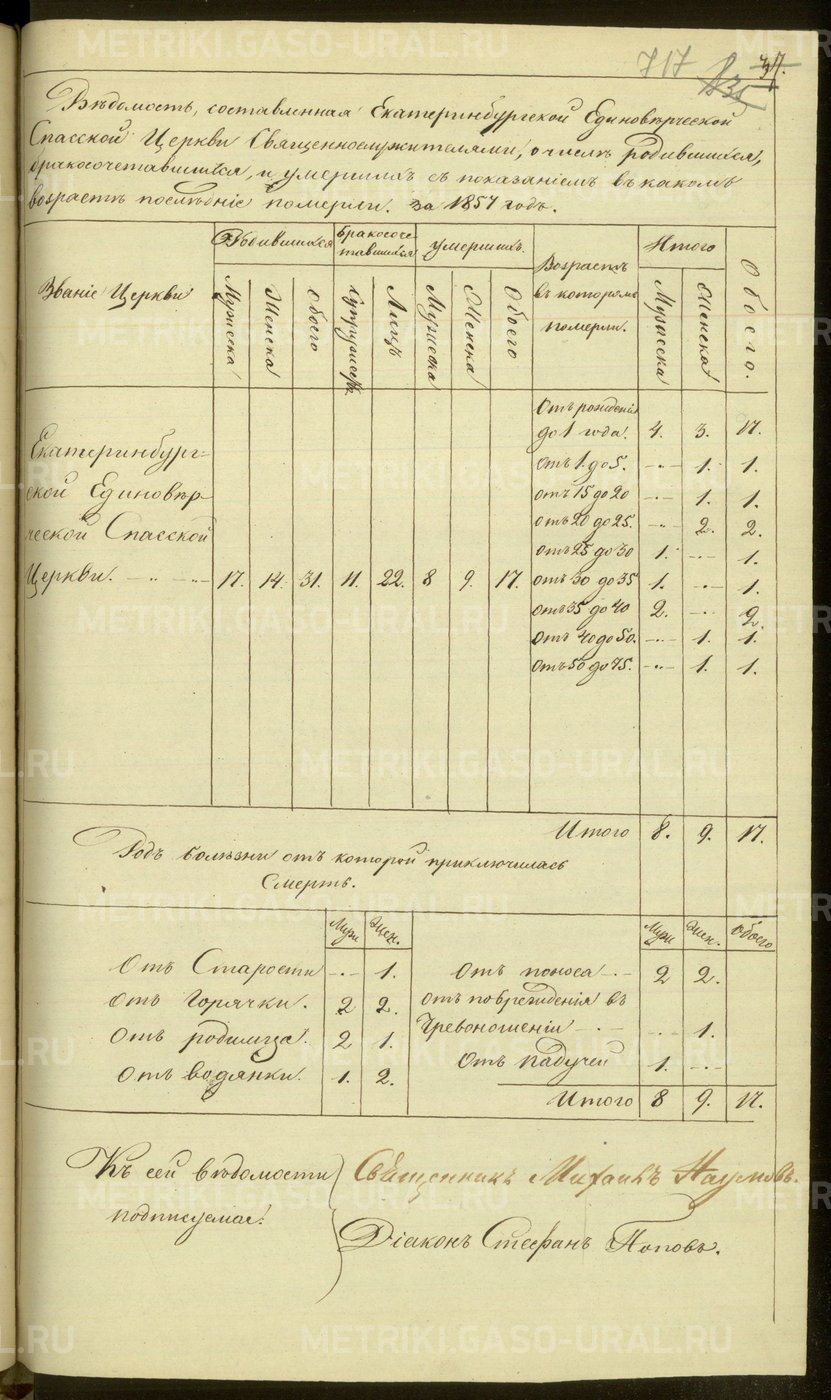 METRIKI.GASO-URAL.RU
717
37.
Вѣдомость, составленная Екатеринбургской Единовѣрческой
Спасской Церкви Священнослужителями, о числѣ родившихся,
бракосочетавшихся, и умершихъ съ показаніемъ въ какомъ
возрастѣ послѣдніе померли. за 1857 годъ.
Званіе Церкви
Родившихся
Бракосоче-
тавшихся
умершихъ.
Возрастъ
въ которомъ
померли.
Итого
Обоего.
Мужеска
Женска
Обоего
Супружествъ
Лицъ
Мужеска
Женска
Обоего
Мужеска
Женска
Екатеринбург-
ской Единовѣр-
ческой Спасской
Церкви. 17. 14. 31. 11. 22. 8 9. 17.
Отъ рожденія
до 1 года. 4. 3. 17.
отъ 1. до 5. -"- 1. 1.
отъ 15 до 20 -"- 1. 1.
отъ 20 до 25. -"- 2. 2.
отъ 25 до 30 1. -"- 1.
отъ 30 до 35 1. -"- 1.
отъ 35 до 40 2. -"- 2.
отъ 40 до 50. -"- 1. 1.
отъ 50 до 75. -"- 1. 1.
Итого 8. 9. 17.
Родъ болѣзни отъ которой приключилась
Смерть.
Муж Жен.
Муж Жен. Обоего
Отъ Старости -"- 1.
Отъ Горячки. 2 2.
Отъ родимца. 2 1.
Отъ водянки. 1. 2.
Отъ поноса 2 2.
отъ поврежденія въ
Чревоношеніи -"- 1.
Отъ падучей 1. -"-
Итого 8 9. 17.
Къ сей вѣдомости
подписуемся:
Священникъ Михаилъ Наумовъ.
Діаконъ Стефанъ Поповъ.